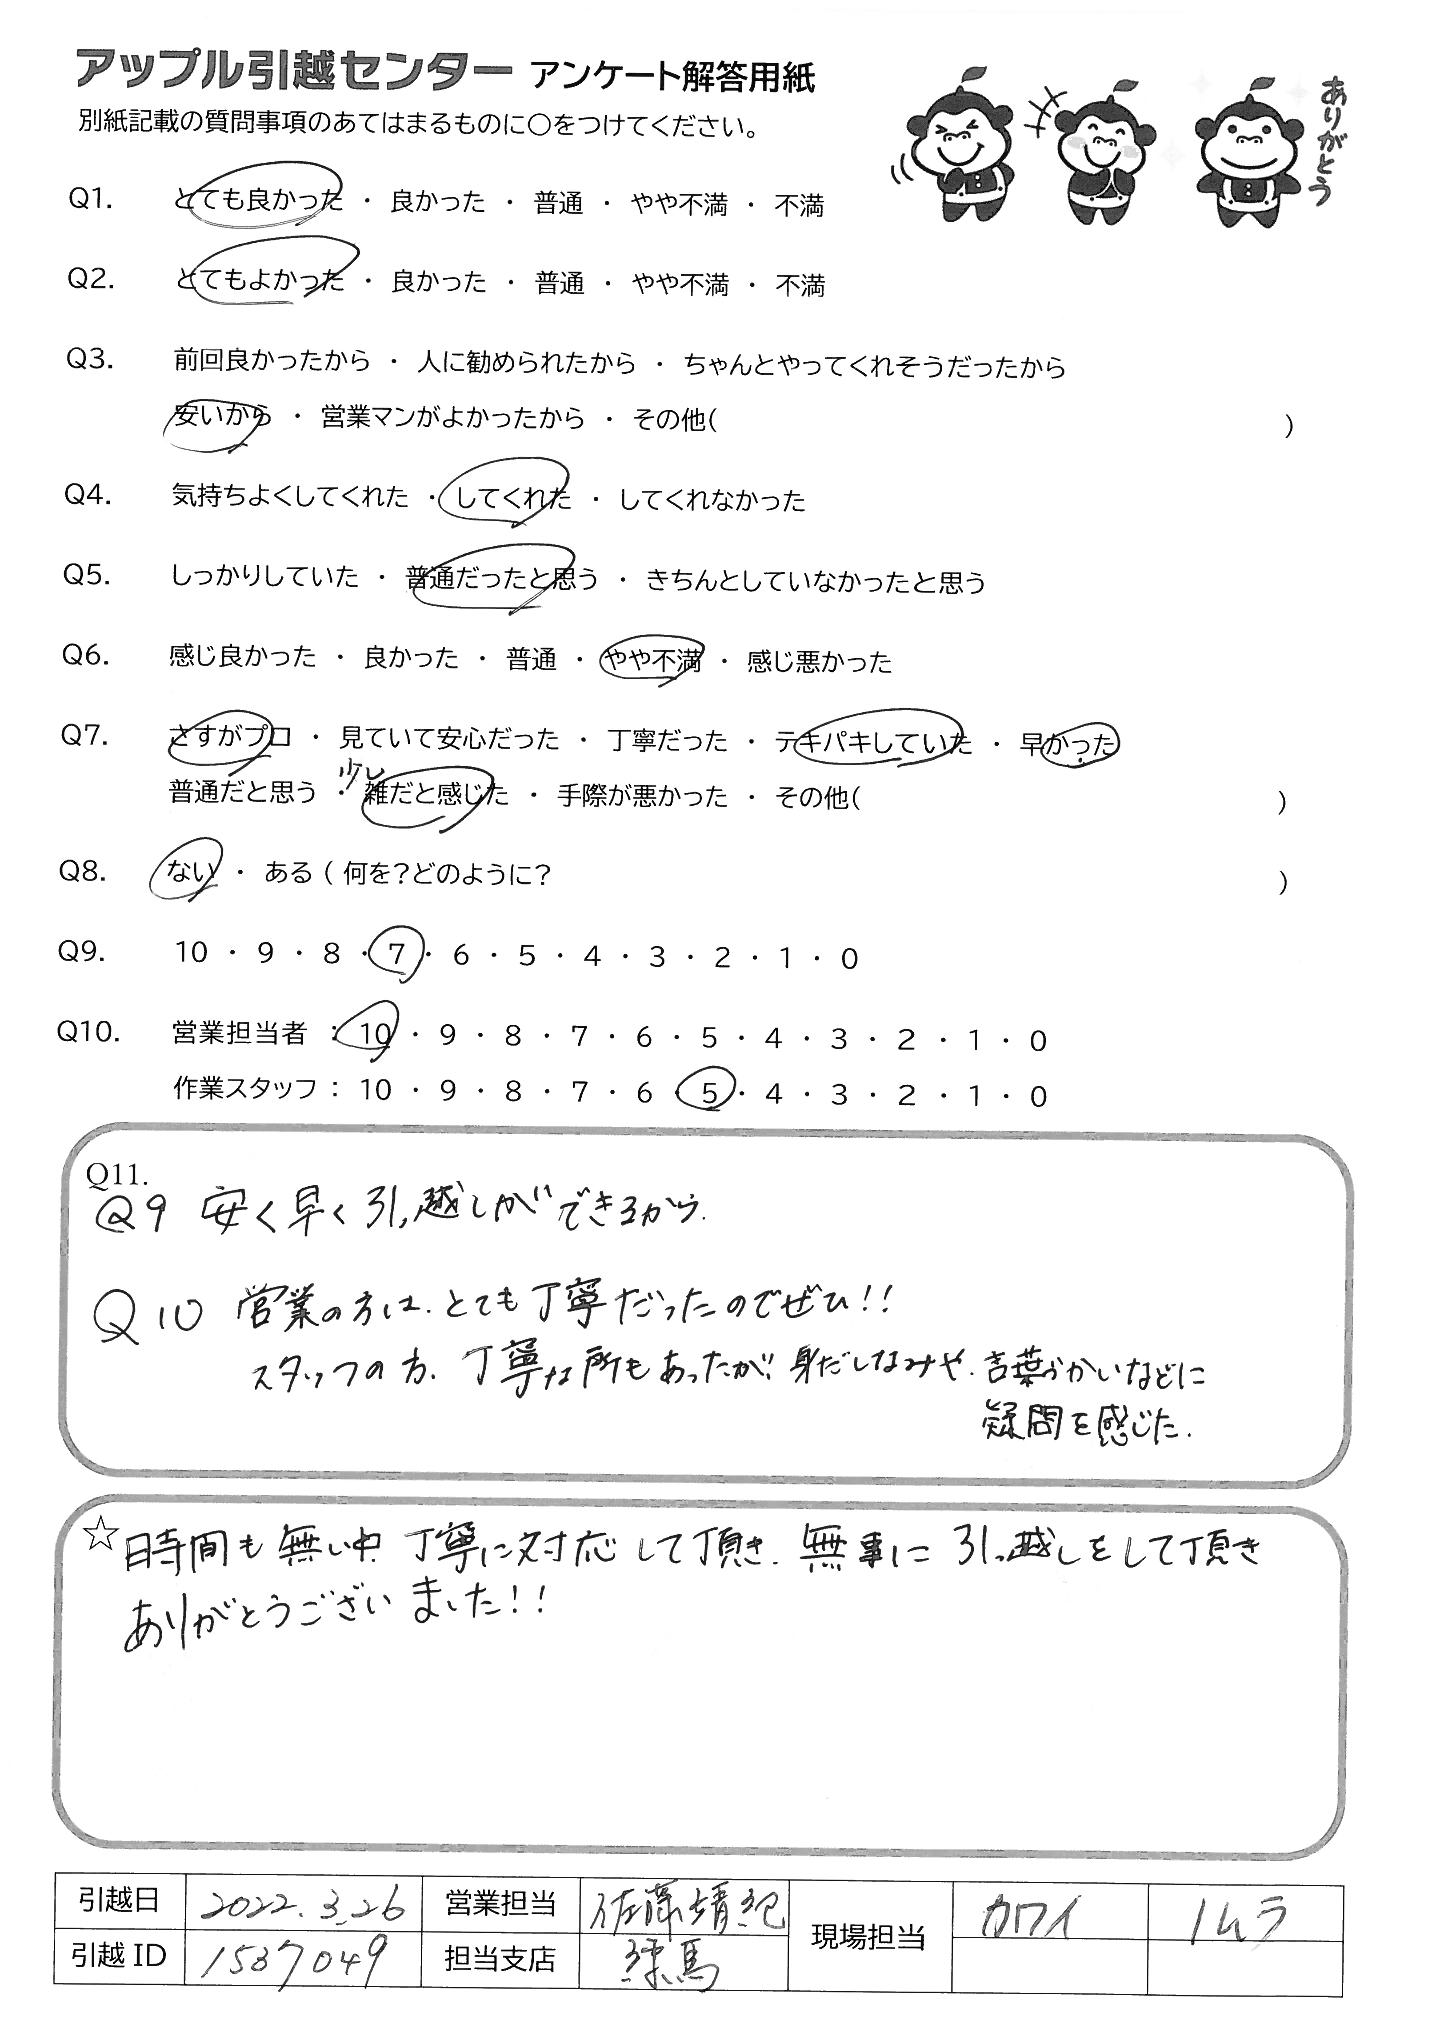 アップル引越センター アンケート解答用紙
別紙記載の質問事項のあてはまるものに○をつけてください。
ありがとう
Q1. とても良かった ・ 良かった ・ 普通 ・ やや不満 ・ 不満
Q2. とてもよかった ・ 良かった ・ 普通 ・ やや不満 ・ 不満
Q3. 前回良かったから ・ 人に勧められたから ・ ちゃんとやってくれそうだったから
安いから ・ 営業マンがよかったから ・ その他( )
Q4. 気持ちよくしてくれた ・ してくれた ・ してくれなかった
Q5. しっかりしていた ・ 普通だったと思う ・ きちんとしていなかったと思う
Q6. 感じ良かった ・ 良かった ・ 普通 ・ やや不満 ・ 感じ悪かった
Q7. さすがプロ ・ 見ていて安心だった ・ 丁寧だった ・ テキパキしていた ・ 早かった
少し
普通だと思う ・ 雑だと感じた ・ 手際が悪かった ・ その他( )
Q8. ない ・ ある ( 何を?どのように? )
Q9. 10 ・ 9 ・ 8 ・ 7 ・ 6 ・ 5 ・ 4 ・ 3 ・ 2 ・ 1 ・ 0
Q10. 営業担当者 : 10 ・ 9 ・ 8 ・ 7 ・ 6 ・ 5 ・ 4 ・ 3 ・ 2 ・ 1 ・ 0
作業スタッフ : 10 ・ 9 ・ 8 ・ 7 ・ 6 ・ 5 ・ 4 ・ 3 ・ 2 ・ 1 ・ 0
Q11.
Q9 安く早く引っ越しができるから.
Q10 営業の方は、とても丁寧だったのでぜひ!!
スタッフの方、丁寧な所もあったが、身だしなみや、言葉づかいなどに
疑問を感じた.
☆時間も無い中 丁寧に対応して頂き、無事に引っ越しをして頂き
ありがとうございました!!
引越日 2022.3.26 営業担当 佐藤靖紀 現場担当 カワイ ノムラ
引越ID 1587049 担当支店 練馬